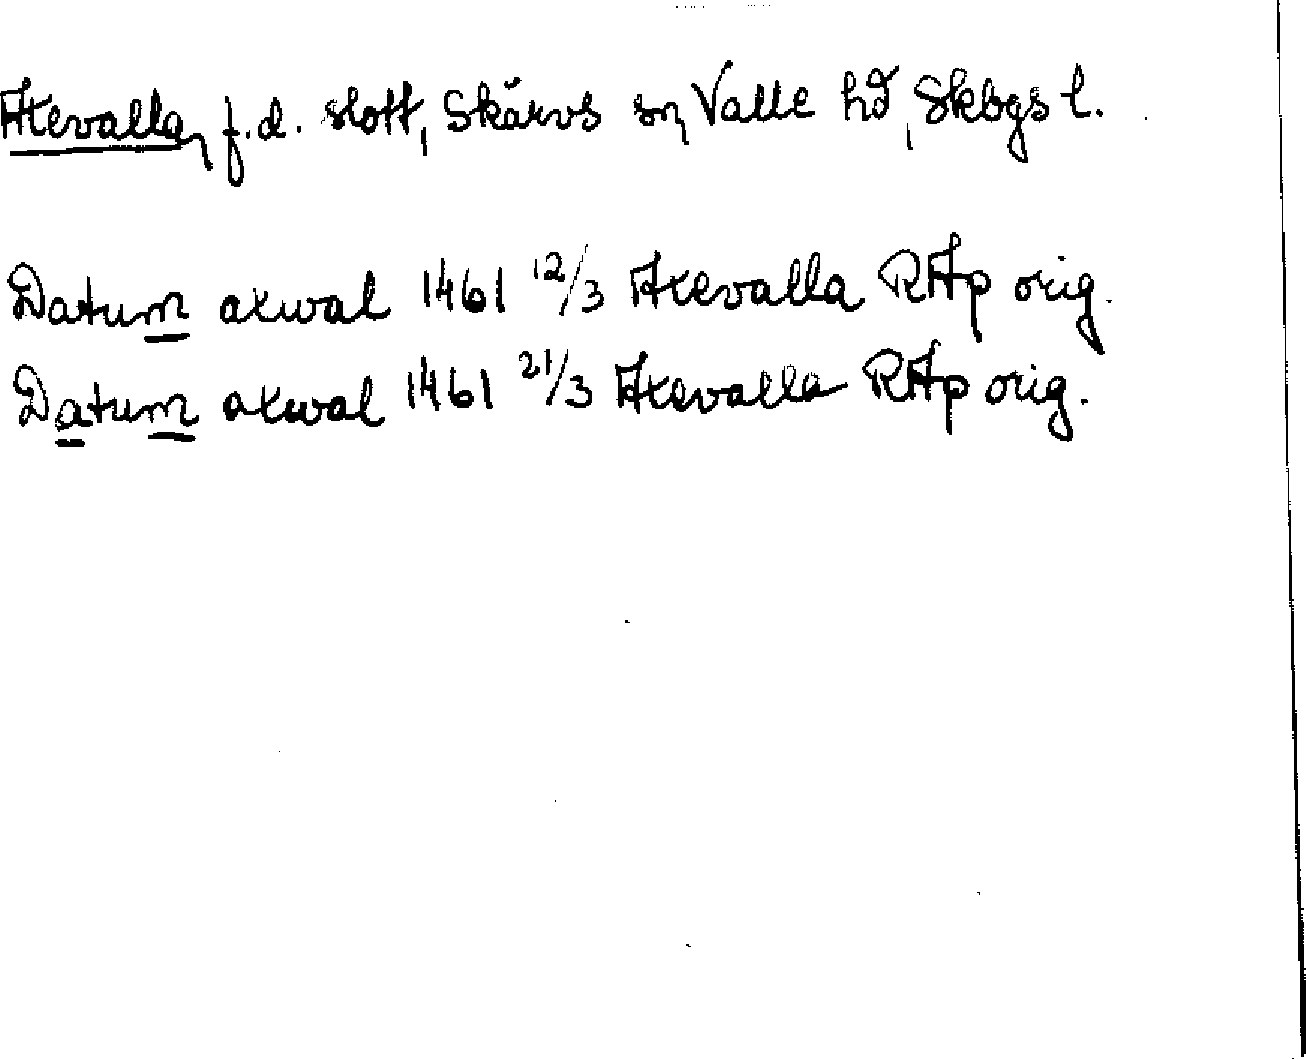 Axevalla, f.d. slott, Skärvs sn, Valle hd, Skbgs l.
Datum axwal 1461 12/3 Axevalla RAp orig.
Datum axwal 1461 21/3 Axevalla RAp orig.